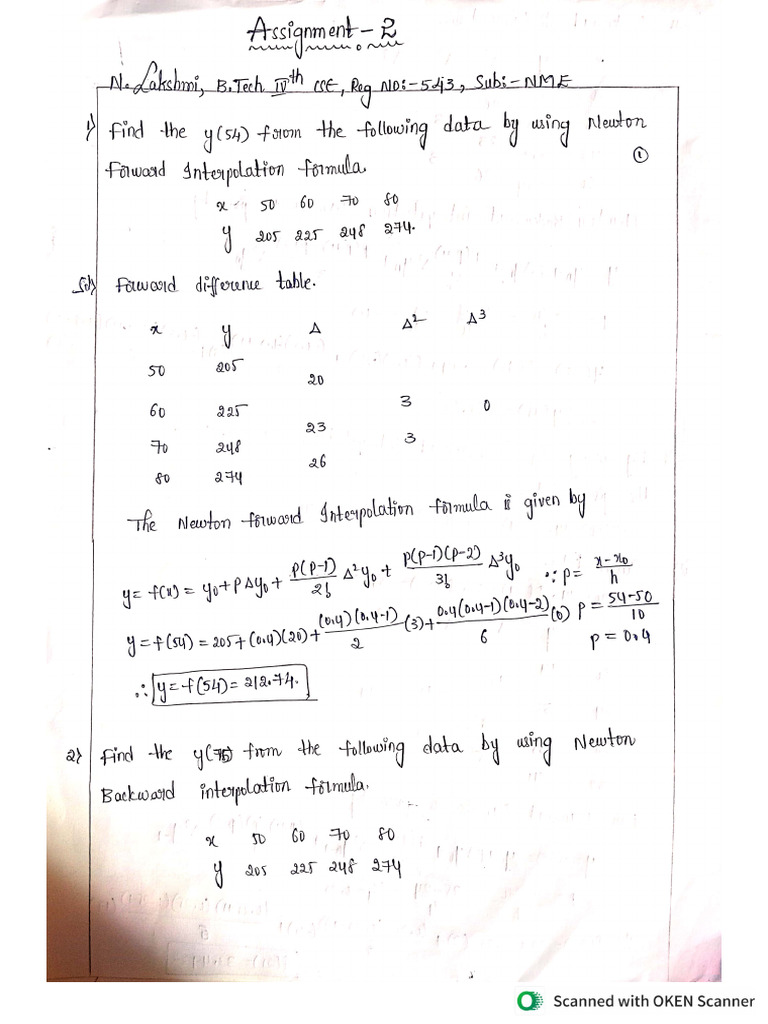 Assignment - 2
N. Lakshmi, B.Tech IVth CSE, Reg NO:- 5U3, Sub:- NME
1) Find the y(54) from the following data by using Newton
Forward Interpolation formula.
①
x 50 60 70 80
y 205 225 248 274.
Sol) Forward difference table.
x y Δ Δ² Δ³
50 205
20
60 225 3 0
23
70 248 3
26
80 274
The Newton forward Interpolation formula is given by
y = f(x) = y₀ + pΔy₀ + p(p-1)/2! Δ²y₀ + p(p-1)(p-2)/3! Δ³y₀ ∵ p = x-x₀/h
y = f(54) = 205 + (0.4)(20) + (0.4)(0.4-1)/2 (3) + 0.4(0.4-1)(0.4-2)/6 (0) p = 54-50/10
p = 0.4
∴ y = f(54) = 212.74.
2) Find the y(75) from the following data by using Newton
Backward interpolation formula.
x 50 60 70 80
y 205 225 248 274
Scanned with OKEN Scanner